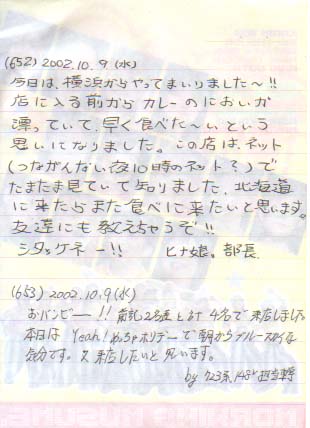 (652) 2002.10.9(水)
今日は、横浜からやってまいりました〜!!
店に入る前からカレーのにおいが
漂っていて、早く食べた〜いという
思いになりました。この店は、ネット
(つながんない夜10時のネット?)で
たまたま見ていて知りました。北海道
に来たらまた食べに来たいと思います。
友達にも教えちゃうぞ!!
シタッケネー!! ヒナ娘。部長
(653) 2002.10.9(水)
おバンビー!! 2名 計 4名で来店しました
本日は Yeah!めっちゃホリデーで朝からブルースカイな
気分です。又来店したいと思います。
by 723系
MORNING MUSUME.